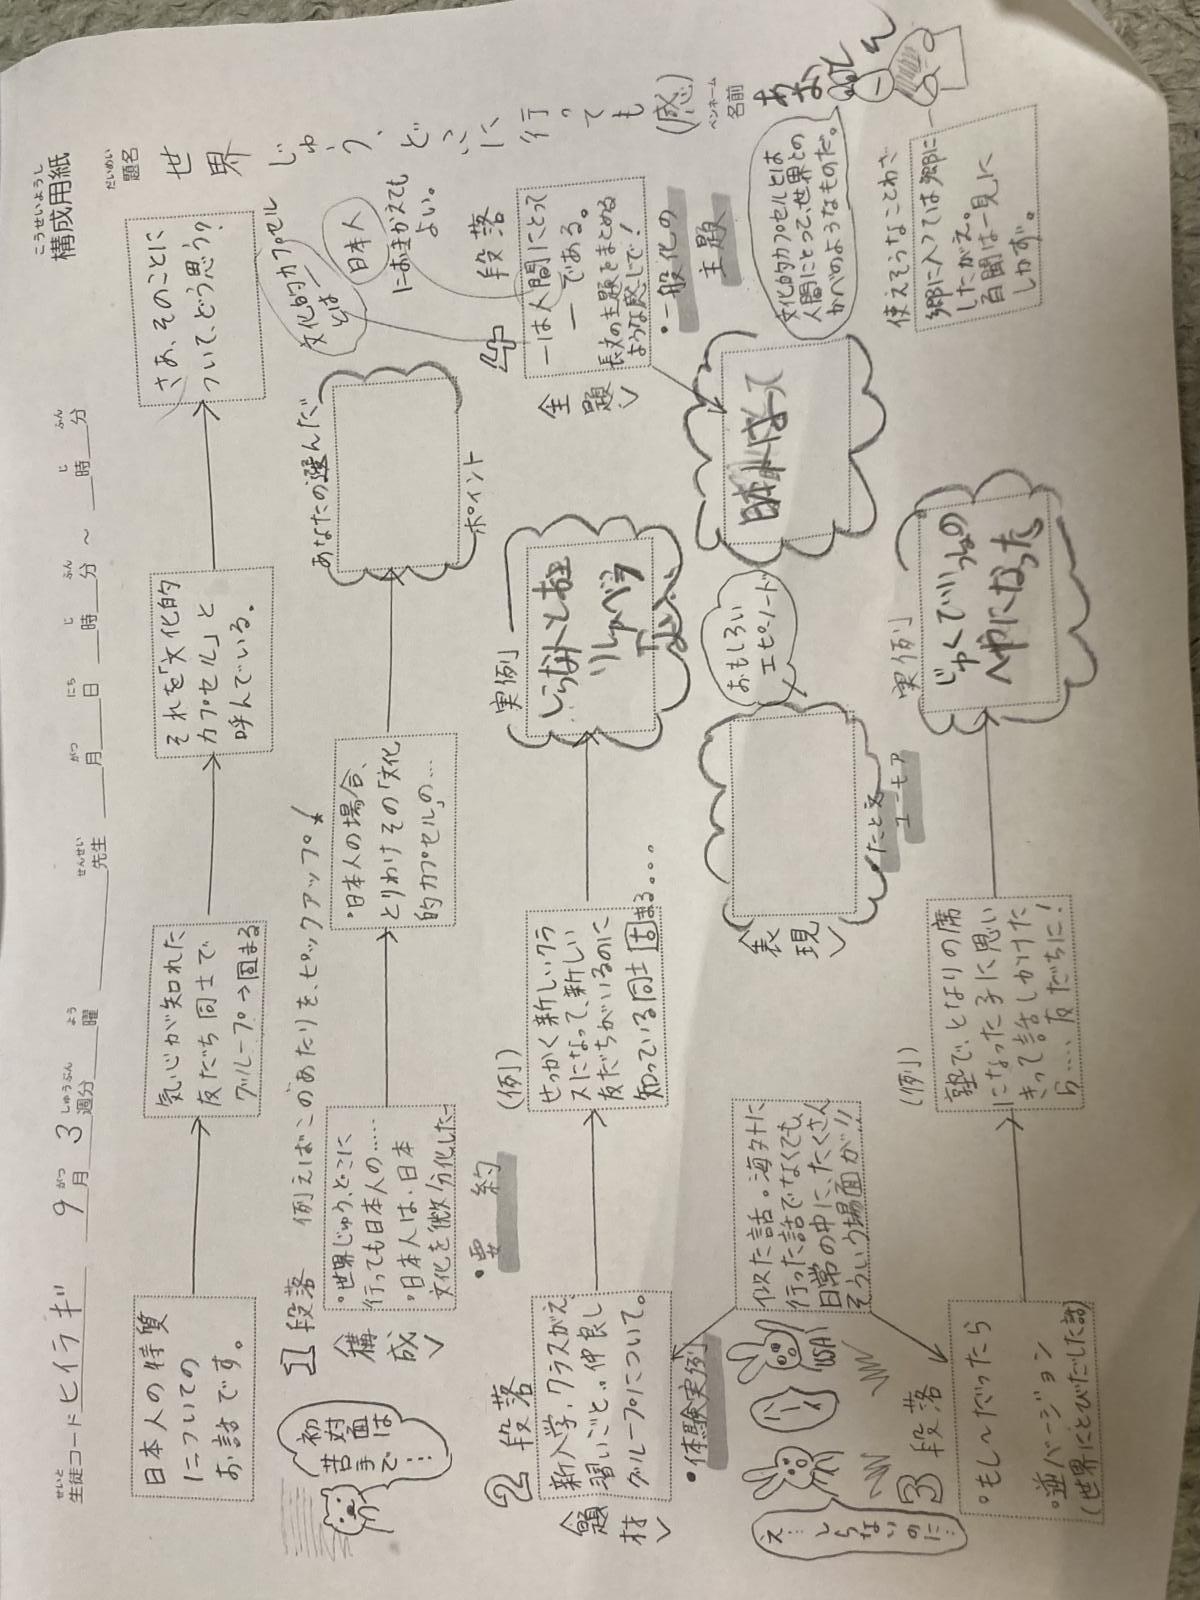 こうせいようし
構成用紙
せいと
生徒コード ヒイラギ
がつ
9月
しゅうぶん
3週分
よう
曜
せんせい
先生
がつ にち じ ふん じ ふん
月 日 時 分 ～ 時 分
だいめい
題名
世界じゅう、どこに行っても(感)
ペンネーム
名前
あおりん
日本人の特質
についての
お話です。
気心が知れた
友だち同士で
グループ→固まる
それを「文化的
カプセル」と
呼んでいる。
さあ、そのことに
ついて、どう思う?
初対面は
苦手で…
1 段落
〈構成〉
例えばこのあたりを、ピックアップ!
・世界じゅう、どこに
行っても日本人の……
・日本人は、日本
文化を「微分化した
・要約
・日本人の場合、
とりわけその「文化
的カプセル」の…
あなたの選んだ
ポイント
文化的カプセル
とは
日本人
におきかえても
よい。
2 段落
〈題材〉
新入学、クラスがえ
習いごと。仲良し
グループについて。
・体験実例
(例)
せっかく新しいクラ
スになって、新しい
友だちがいるのに
知っている同士固まる。。。
実例
しらないとしお
4 段落
〈主題〉
ーは人間にとって
ーである。
長文の主題をまとめる
ような感じで!
・一般化の
主題
文化的カプセルとは
人間にとって、世界との
かべのようなものだ。
似た話。海外に
行った話でなくても、
日常の中に、たくさん
そういう場面が!!
USA
え…
しらないのに…
〈表現〉
・たとえ
ユーモア
おもしろい
エピソード
日本人になって
使えそうなことわざ
郷に入っては郷に
したがえ。
百聞は一見に
しかず。
3 段落
・もし～だったら
・逆バージョン
(世界にとびだした話)
(例)
塾で、となりの席
になった子に思い
きって話しかけた
ら…、友だちに!
実例
じゅくでいっしょの
へやになった